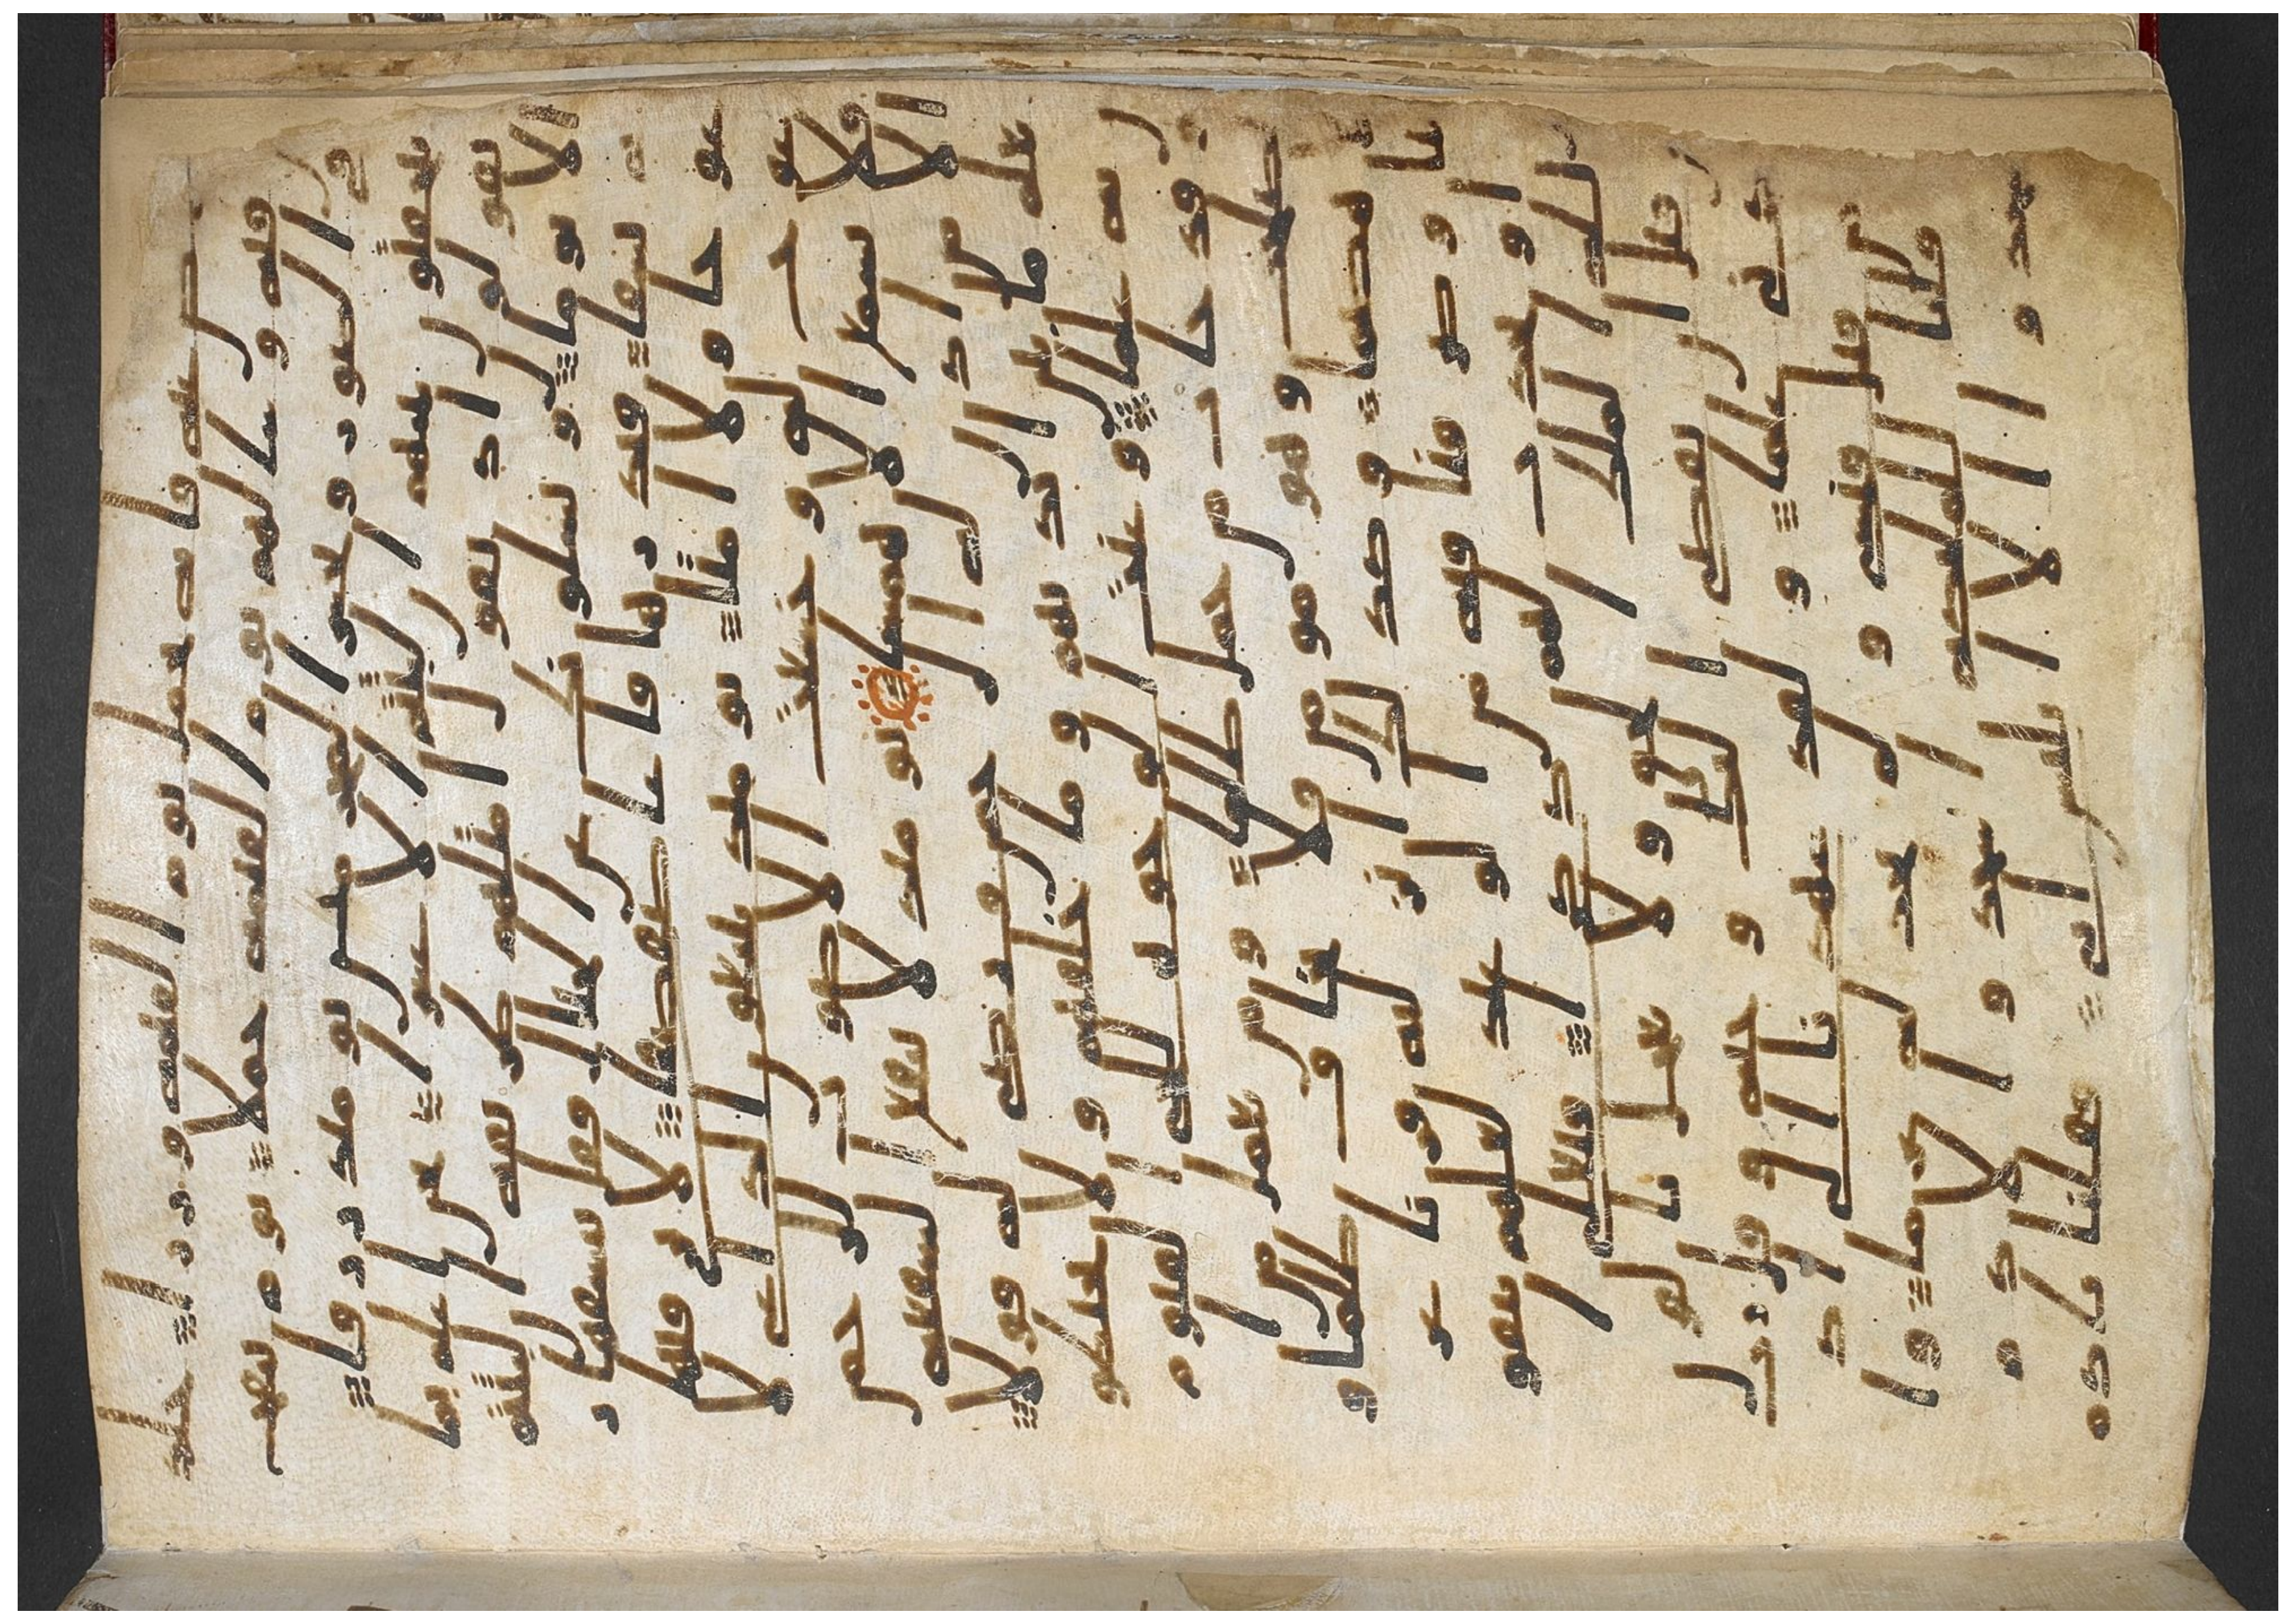 عنه فانه يحمل يوم القيمه وزرا خلد
ين فيه وسا لهم يوم القيمه حملا يوم ينفخ
في الصور ونحشر المجرمين يومئذ زرقا
يتخفتون بينهم ان لبثتم الا عشرا نحن اعلم بما
يقولون اذ يقول امثلهم طريقه ان لبثتم
الا يوما ويسلونك عن الجبال فقل ينسفها ر
بي نسفا فيذرها قاعا صفصفا لا ترى فيها
عوجا ولا امتا يومئذ يتبعون الداعي لا
عوج له وخشعت الاصوت للرحمن
فلا تسمع الا همسا يومئذ لا تنفع الشفعه
الا من اذن له الرحمن ورضي له قولا
يعلم ما بين ايديهم وما خلفهم ولا يحيطون
به علما وعنت الوجوه للحي القيوم
وقد خاب من حمل ظلما ومن يعمل من ا
لصلحت وهو مومن فلا يخاف ظلما و
لا هضما وكذلك انزلنه قرانا عر
بيا وصرفنا فيه من الوعيد لعلهم يتقون
او يحدث لهم ذكرا فتعلى ا
لله الملك الحق ولا تعجل با
لقران من قبل ان يقضى اليك وحيه وقل رب ز
دني علما ولقد عهدنا الى اد
م من قبل فنسي ولم نجد له عزما وا
ذ قلنا للملئكه اسجدوا لاد
م فسجدوا الا ابليس ابى فقلنا يادم